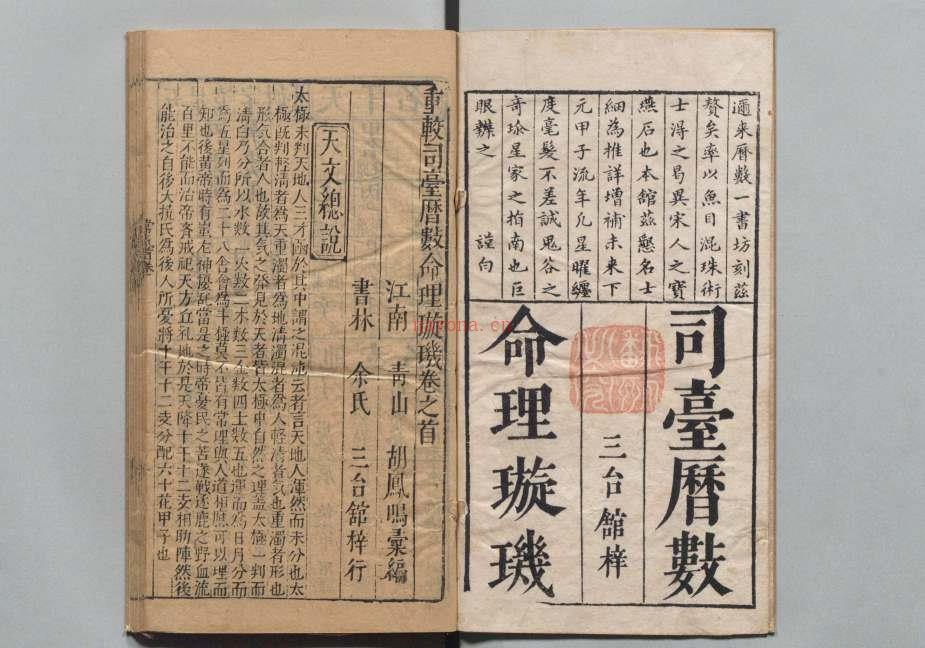 邇来曆數一書坊刻茲
贅矣率以魚目混珠術
士得之曷異宋人之寶
燕石也本舘茲懇名士
細為推詳增補未来下
元甲子流年凢星曜纏
度毫髮不差誠鬼谷之
奇瑜星家之指南也巨
眼辨之 謹白
司臺曆數
三台舘梓
命理璇璣
重較司臺曆數命理璇璣卷之首
江南 青山 胡鳳鳴彙編
書林 余氏 三台舘梓行
天文總說
太極未判天地人三才函於其中謂之混沌云者言天地人渾然而未分也太
極既判輕清者為天重濁者為地清濁混者為人輕清者氣也重濁者形也
形氣合者人也故其氣之發見於天者皆太極中自然之理蓋太極一判而
清白乃分所以水數一火數二木數三金數四土數五也運而為日月分而
為五星列而為二十八舍會為斗極莫不皆有常理與人道相應可以理而
知也後黃帝時有蚩尤神擾亂當是之時帝憂民之苦遂戰逐鹿之野血流
百里不能而治帝齊戒祀天方丘礼地於是天降十干十二支相助陣然後
能治之自後大撓氏為後人所憂將十干十二支分配六十花甲子也
nayona.cn